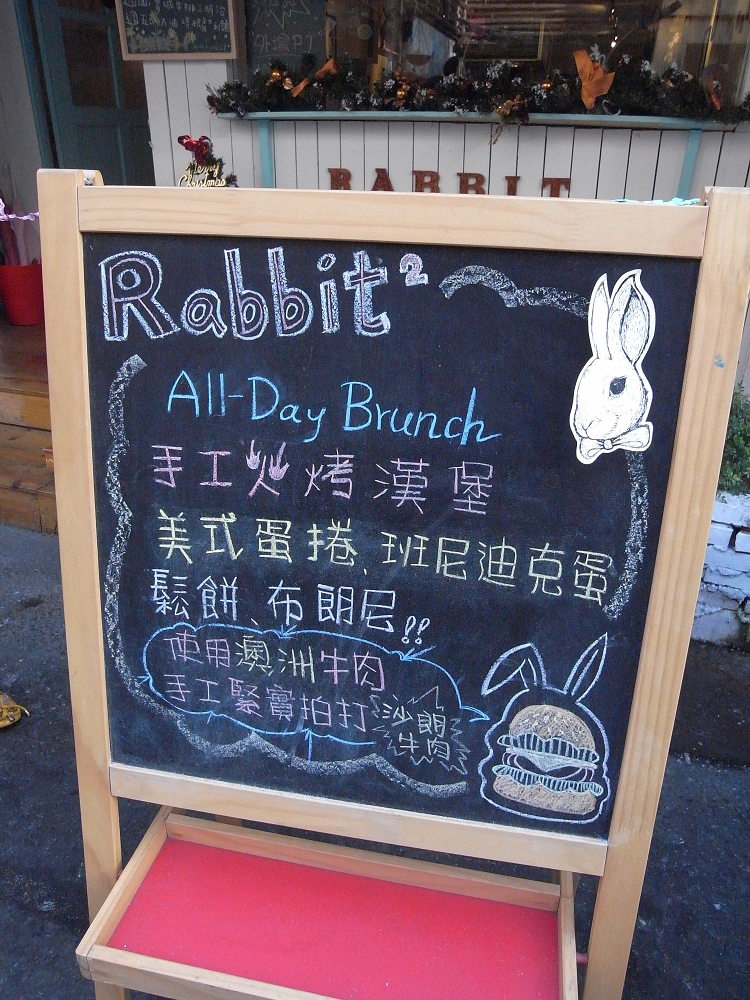 Merry
Christmas
RABBIT
Rabbit²
All-Day Brunch
手工火烤漢堡
美式蛋捲、班尼迪克蛋
鬆餅、布朗尼!!
使用澳洲牛肉
手工緊實拍打
沙朗
牛肉